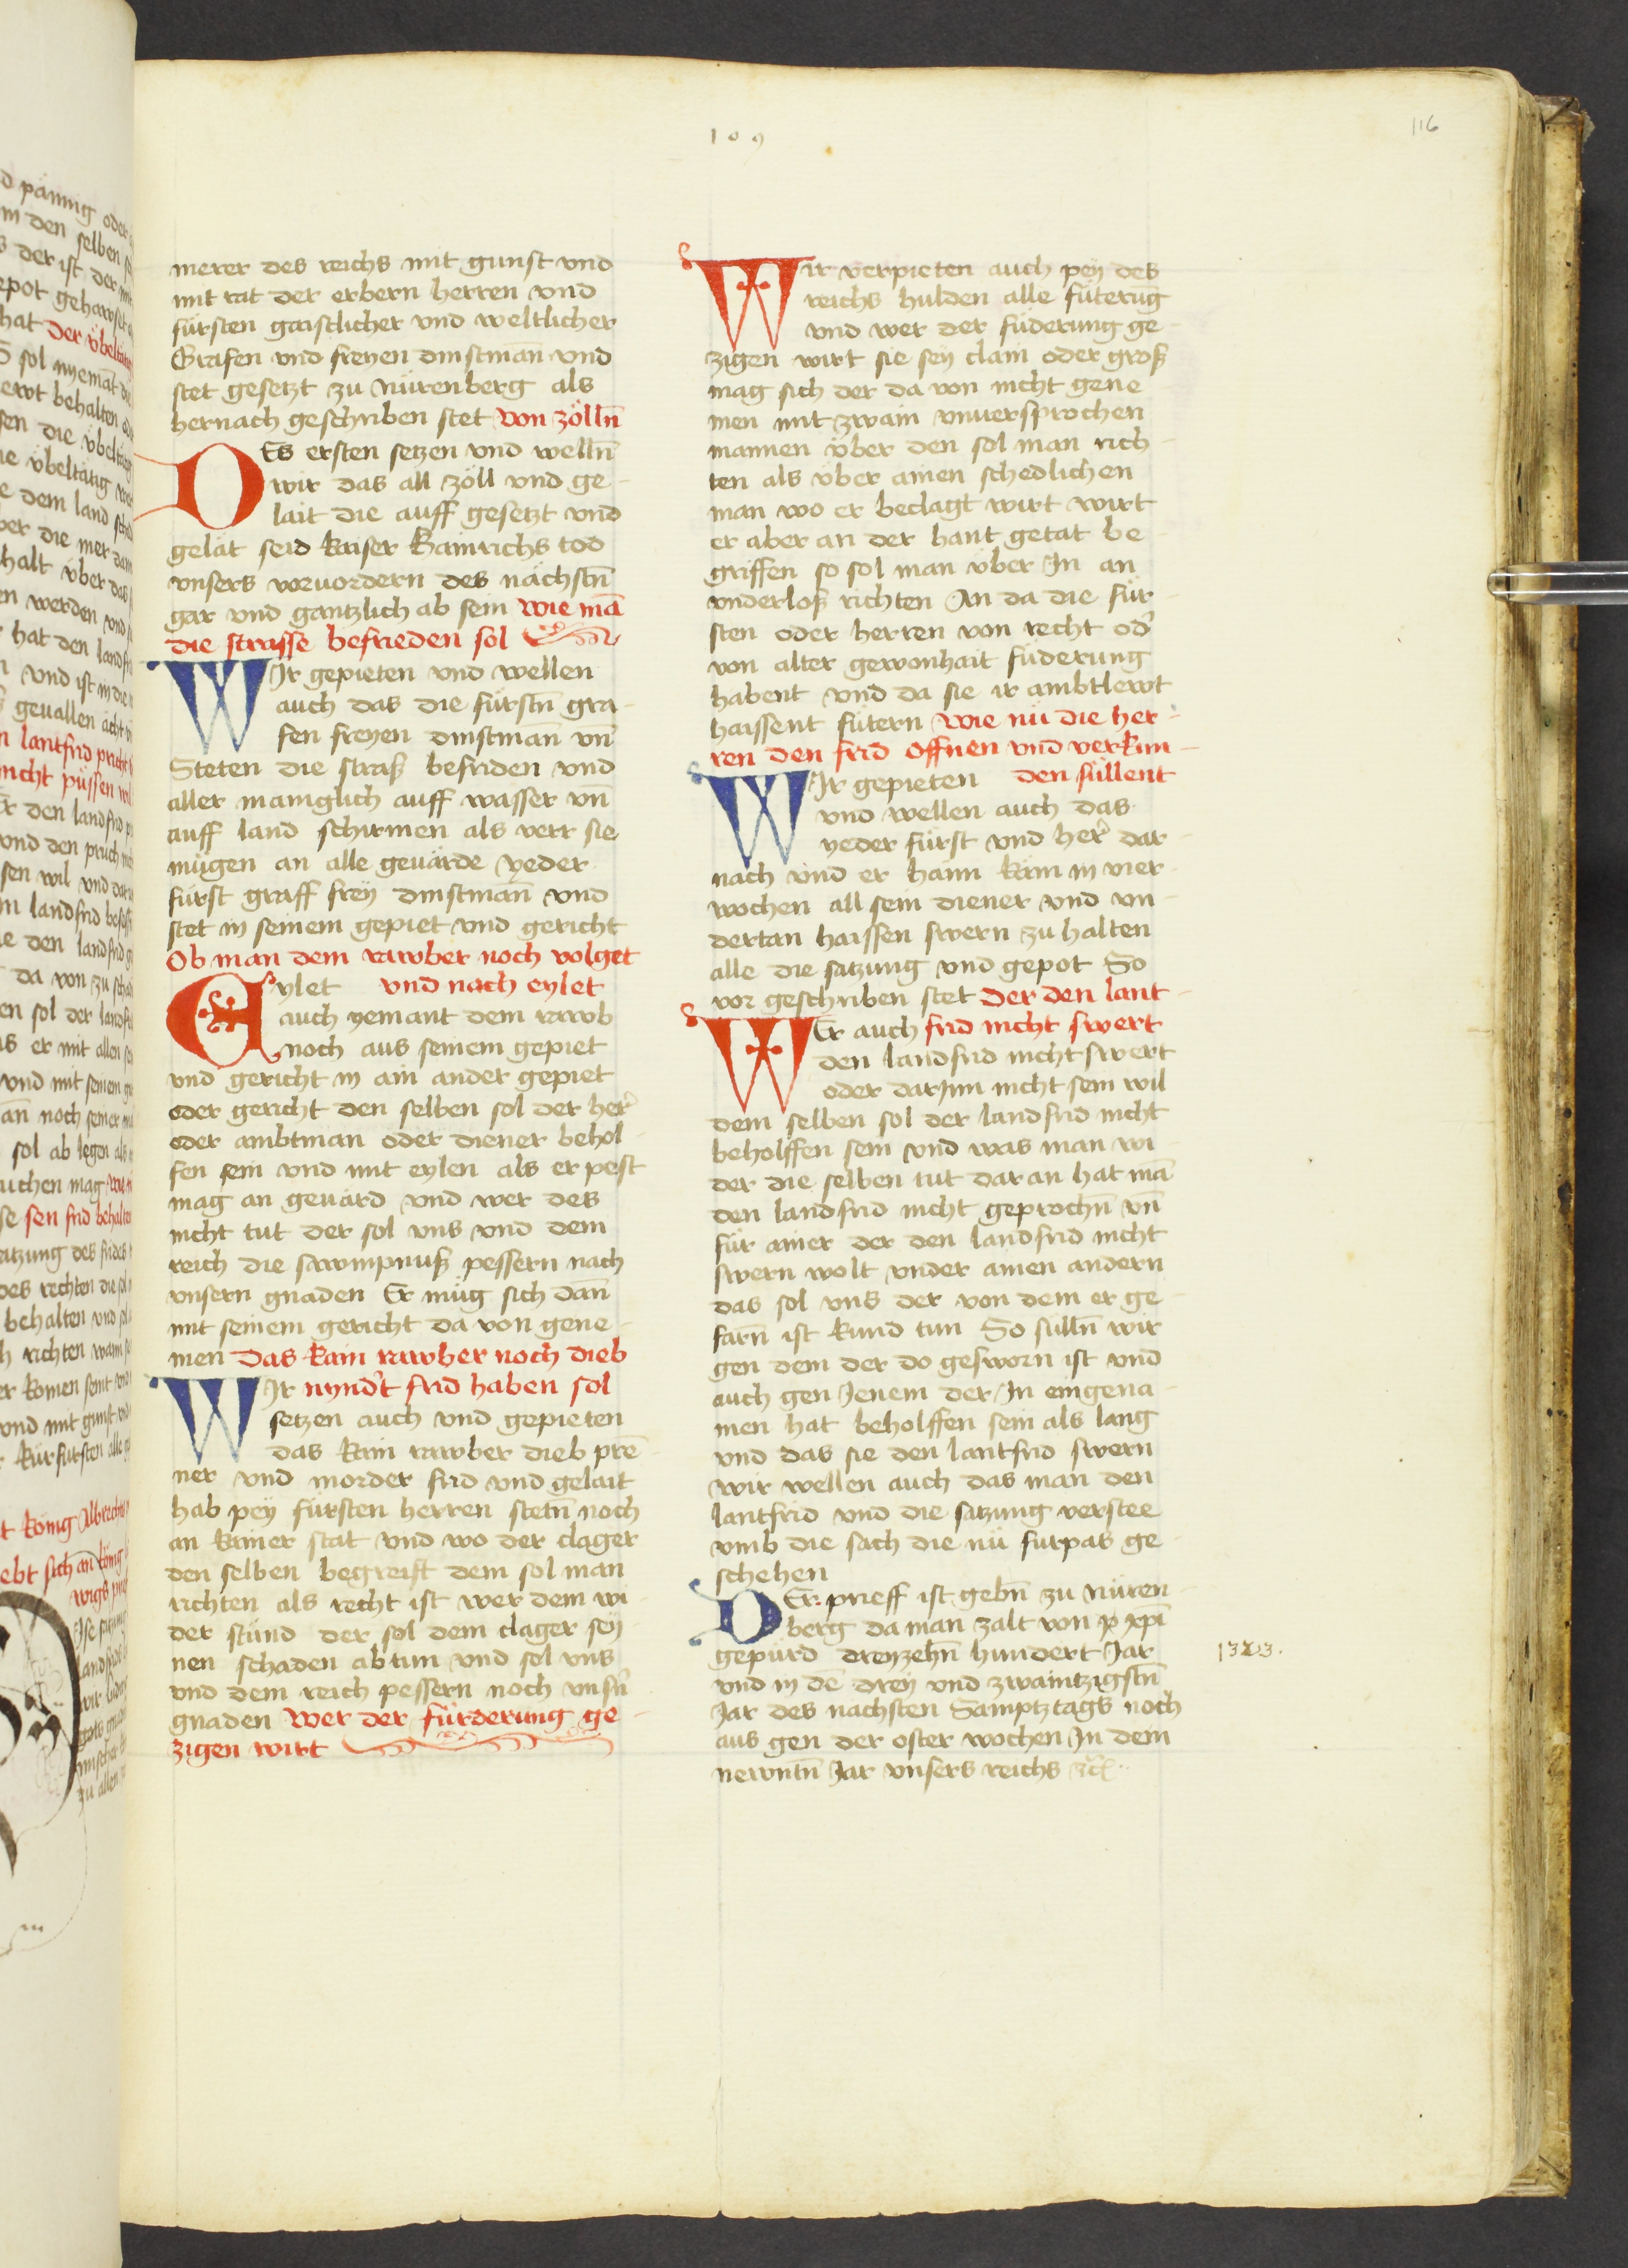 109
116
merer des reichs mit gunst vnd
mit rat der erbern herren vnd
fürsten gaistlicher vnd weltlicher
Grafen vnd freyen dinstman̄ vnd
stet gesetzt zu Nürenberg als
hernach geschriben stet von zölln̄
DEs ersten setzen vnd welln̄
wir das all zöll vnd ge-
lait die auff gesetzt vnd
gelät seid kaiser Hainrichs tod
vnsers voruordern des nächstn̄
gar vnd gantzlich ab sein wie mā
die strasse befrieden sol
WIr gepieten vnd wellen
auch das die fürstn̄ gra-
fen freyen dinstman̄ vn̄
Steten die straß befriden vnd
aller maniglich auff wasser vn̄
auff land schirmen als verr sie
mügen an alle geuärde yeder
fürst graff frey dinstman̄ vnd
stet in seinem gepiet vnd gericht
Ob man dem rawber noch volget
Eylet vnd nach eylet
auch yemant dem rawb
noch aus seinem gepiet
vnd gericht in ain ander gepiet
oder gericht den selben sol der her̉
oder ambtman oder diener behol-
fen sein vnd mit eylen als er pest
mag an geuärd vnd wer des
nicht tut der sol vns vnd dem
reich die sawmpnuß pessern nach
vnsern gnaden Er müg sich dan̄
mit seinem gericht da von gene-
men Das kain rawber noch dieb
WIr nynd̉t frid haben sol
setzen auch vnd gepieten
das kain rawber dieb prē-
ner vnd morder frid vnd gelait
hab pey fürsten herren stetn̄ noch
an kainer stat vnd wo der clager
den selben begreift dem sol man
richten als recht ist wer dem wi-
der stünd der sol dem clager sey-
nen schaden abtun vnd sol vns
vnd dem reich pessern noch vnsn̉
gnaden Wer der fürderung ge-
zigen wirt
Wir verpieten auch pey des
reichs hulden alle füterūg
vnd wer der füderung ge-
zigen wirt sie sey clain oder groß
mag sich der da von nicht gene-
men mit zwain vnuersprochen
mannen über den sol man rich-
ten als über ainen schedlichen
man wo er beclagt wirt wirt
er aber an der hant getat be-
griffen so sol man über In an
vnderloß richten An da die für-
sten oder herren von recht od̉
von alter gewonhait füderung
habent vnd da sie ir ambtlewt
haissent fütern Wie nü die her-
ren den frid offnen vnd verkün-
WIr gepieten den süllent
vnd wellen auch das
yeder fürst vnd her̉ dar-
nach vnd er haim käm in vier
wochen all sein diener vnd vn-
dertan haissen swern zu halten
alle die satzung vnd gepot So
vor geschriben stet Der den lant-
WEr auch frid nicht swert
den landfrid nicht swert
oder darInn nicht sein wil
dem selben sol der landfrid nicht
beholffen sein vnd was man wi-
der die selben tut dar an hat mā
den landfrid nicht geprochn̄ vn̄
für ainer der den landfrid nicht
swern wolt vnder ainen andern
das sol vns der von dem er ge-
farn̄ ist kund tun So sülln̄ wir
gen dem der do gesworn ist vnd
auch gen Jenem der In eingena-
men hat beholffen sein als lang
vnd das sie den lantfrid swern
wir wellen auch das man den
lantfrid vnd die satzung verstee
vmb die sach die nü fürpas ge-
schehen
DEr prieff ist gebn̄ zu Nüren-
berg da man zalt von xpī
gepurd dreyzehn̄ hundert Jar
vnd in dē drey vnd zwaintzigstn̄
Jar des nachsten Samptztags noch
aus gen der oster wochen In dem
newntn̄ Jar vnsers reichs zc̄
1323.